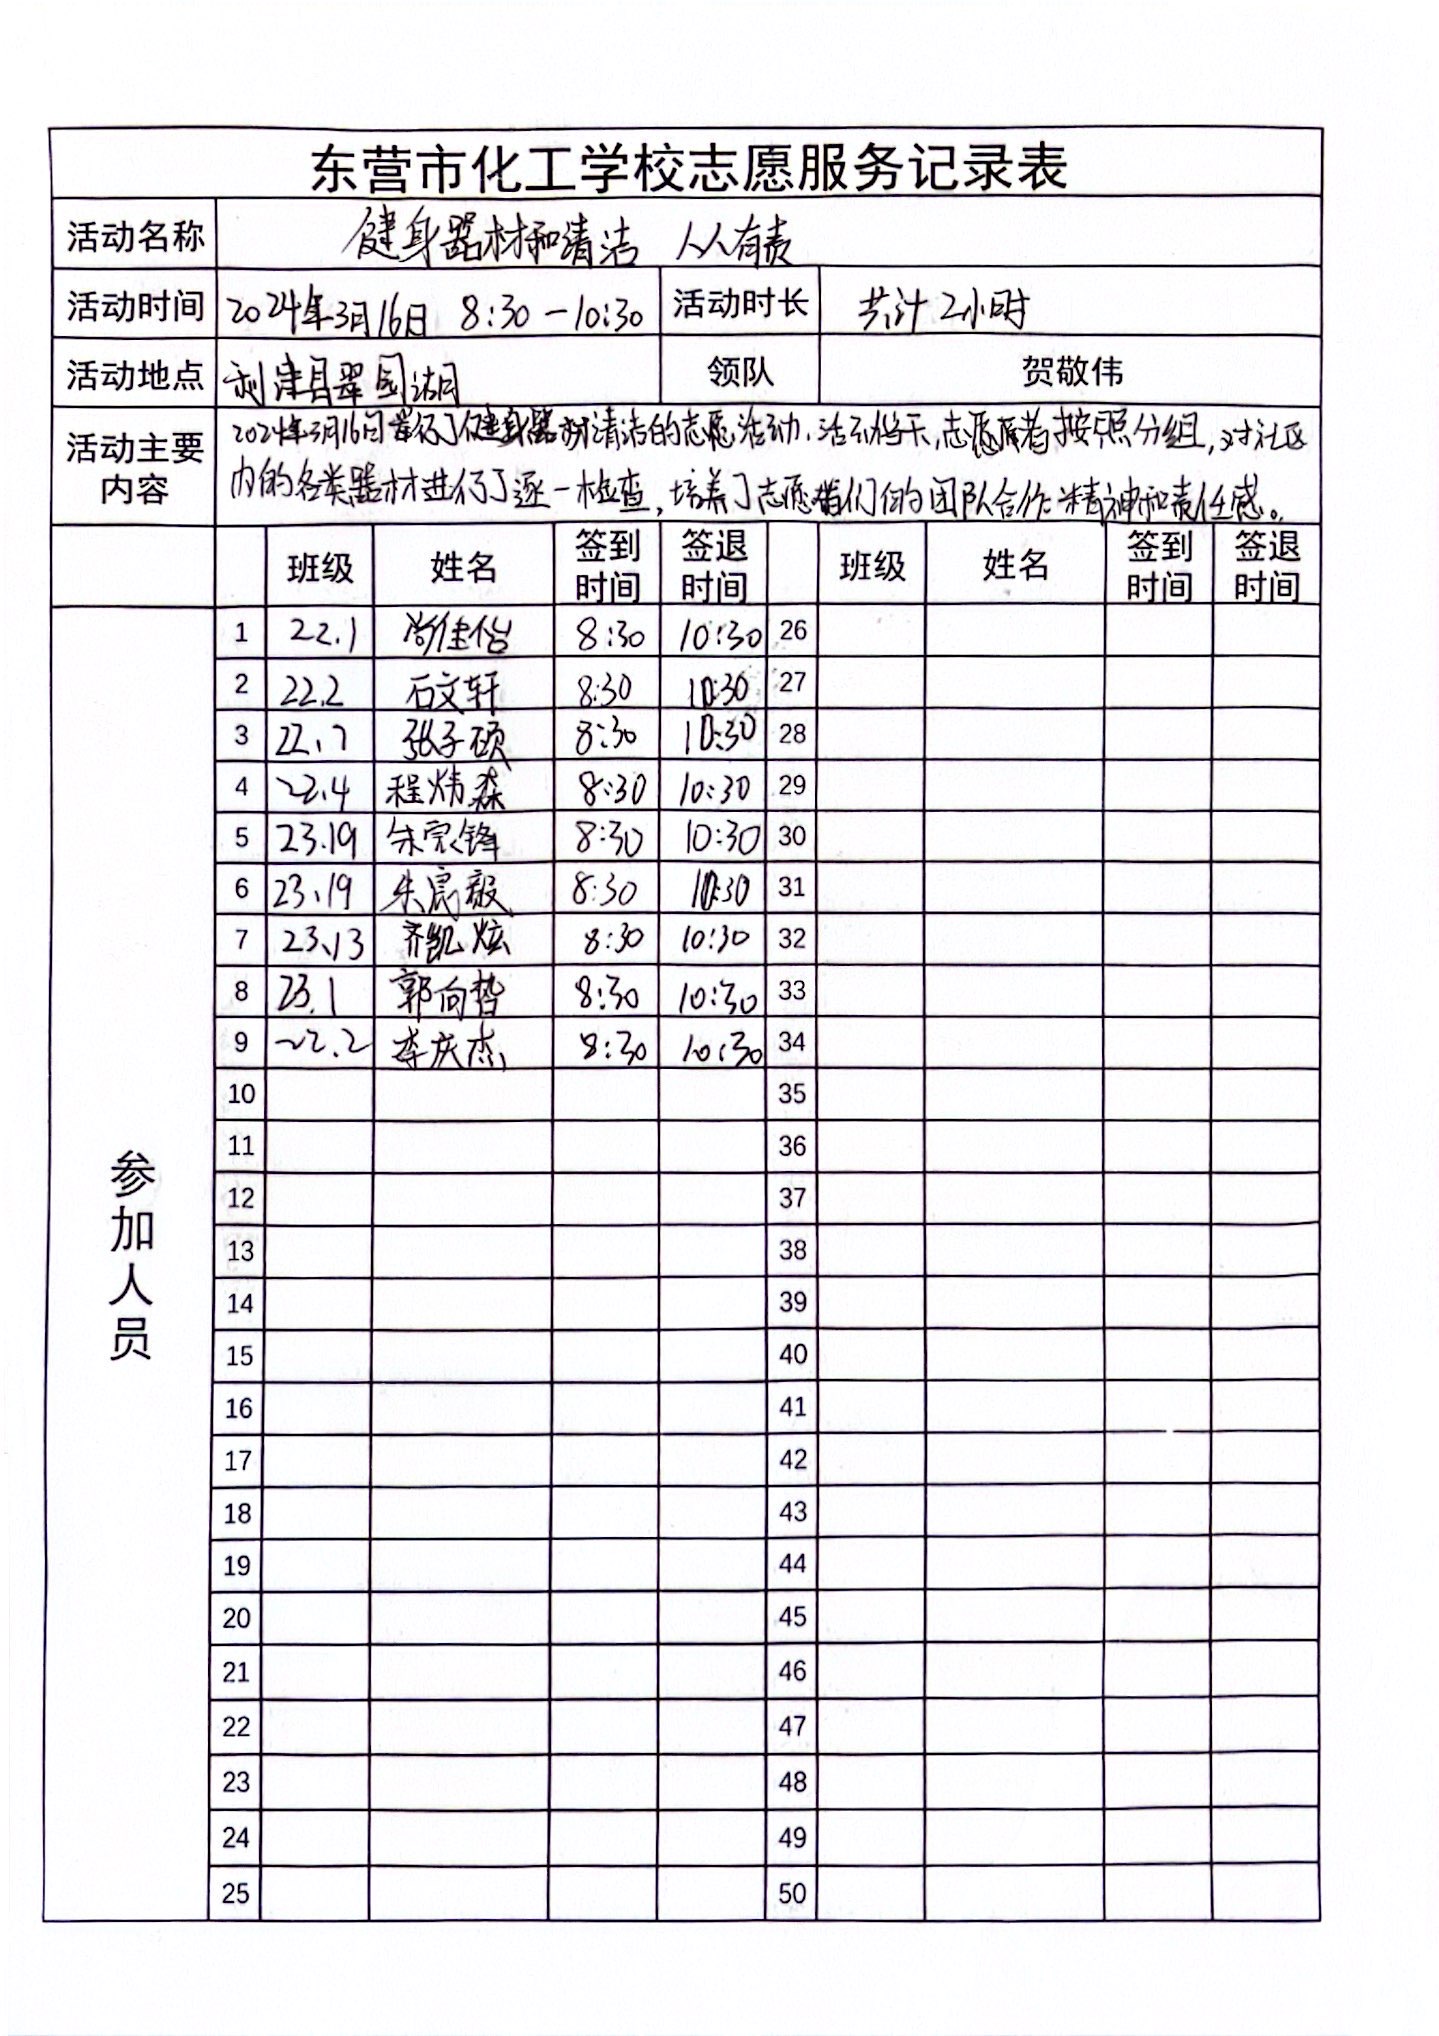 东营市化工学校志愿服务记录表
活动名称 健身器材和清洁 人人有责
活动时间 2024年3月16日 8:30-10:30 活动时长 共计2小时
活动地点 利津县翠园湖 领队 贺敬伟
活动主要内容 2024年3月16日举行了健身器材清洁的志愿活动,活动当天,志愿者按照分组,对社区
内的各类器材进行了逐一检查,培养了志愿者们的团队合作精神和责任感。
班级 姓名 签到时间 签退时间 班级 姓名 签到时间 签退时间
参加人员
1 22.1 尚佳怡 8:30 10:30 26
2 22.2 石文轩 8:30 10:30 27
3 22.7 张子硕 8:30 10:30 28
4 22.4 程炜森 8:30 10:30 29
5 23.19 朱宗锋 8:30 10:30 30
6 23.19 朱宸毅 8:30 10:30 31
7 23.13 齐凯炫 8:30 10:30 32
8 23.1 郭向哲 8:30 10:30 33
9 22.2 李庆杰 8:30 10:30 34
10 35
11 36
12 37
13 38
14 39
15 40
16 41
17 42
18 43
19 44
20 45
21 46
22 47
23 48
24 49
25 50